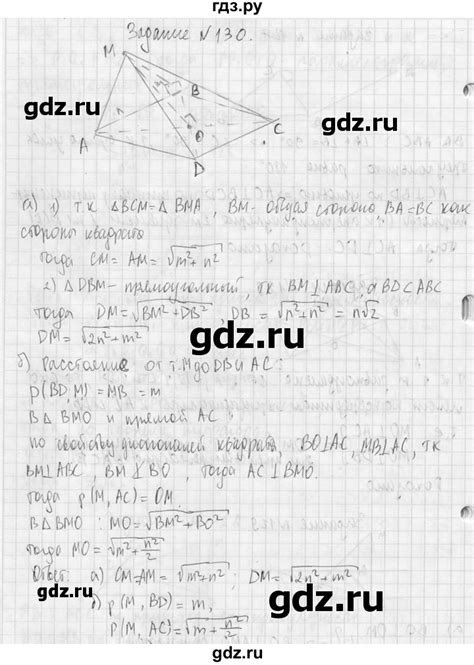 гдз.ру
Задание №130.
M
B
n
O
A
C
D
gdz.ru gdz.ru
а) 1) т к ΔBCM = ΔBMA, BM - общая сторона BA = BC как
стороны квадрата
тогда CM = AM = √m²+n²
2) ΔDBM - прямоугольный, тк BM⊥ABC, а BD⊂ABC
тогда DM = √BM²+DB², DB = √n²+n² = n√2
DM = √2n²+m²
gdz.ru
б) Расстояние от т. M до DB и AC:
ρ(BD,M) = MB = m
В Δ BMO и прямой AC
по свойству диагоналей квадрата, BO⊥AC, MB⊥AC, тк
BM⊥ABC, BM⊥BO, тогда AC⊥BMO.
тогда ρ(M, AC) = OM
gdz.ru gdz.ru
В Δ BMO: MO = √BM²+BO²
тогда MO = √m²+n²/2
Ответ: а) CM=AM = √m²+n²; DM = √2n²+m²
б) ρ(M, BD) = m,
ρ(M, AC) = √m+n²/2
gdz.ru gdz.ru
gdz.ru